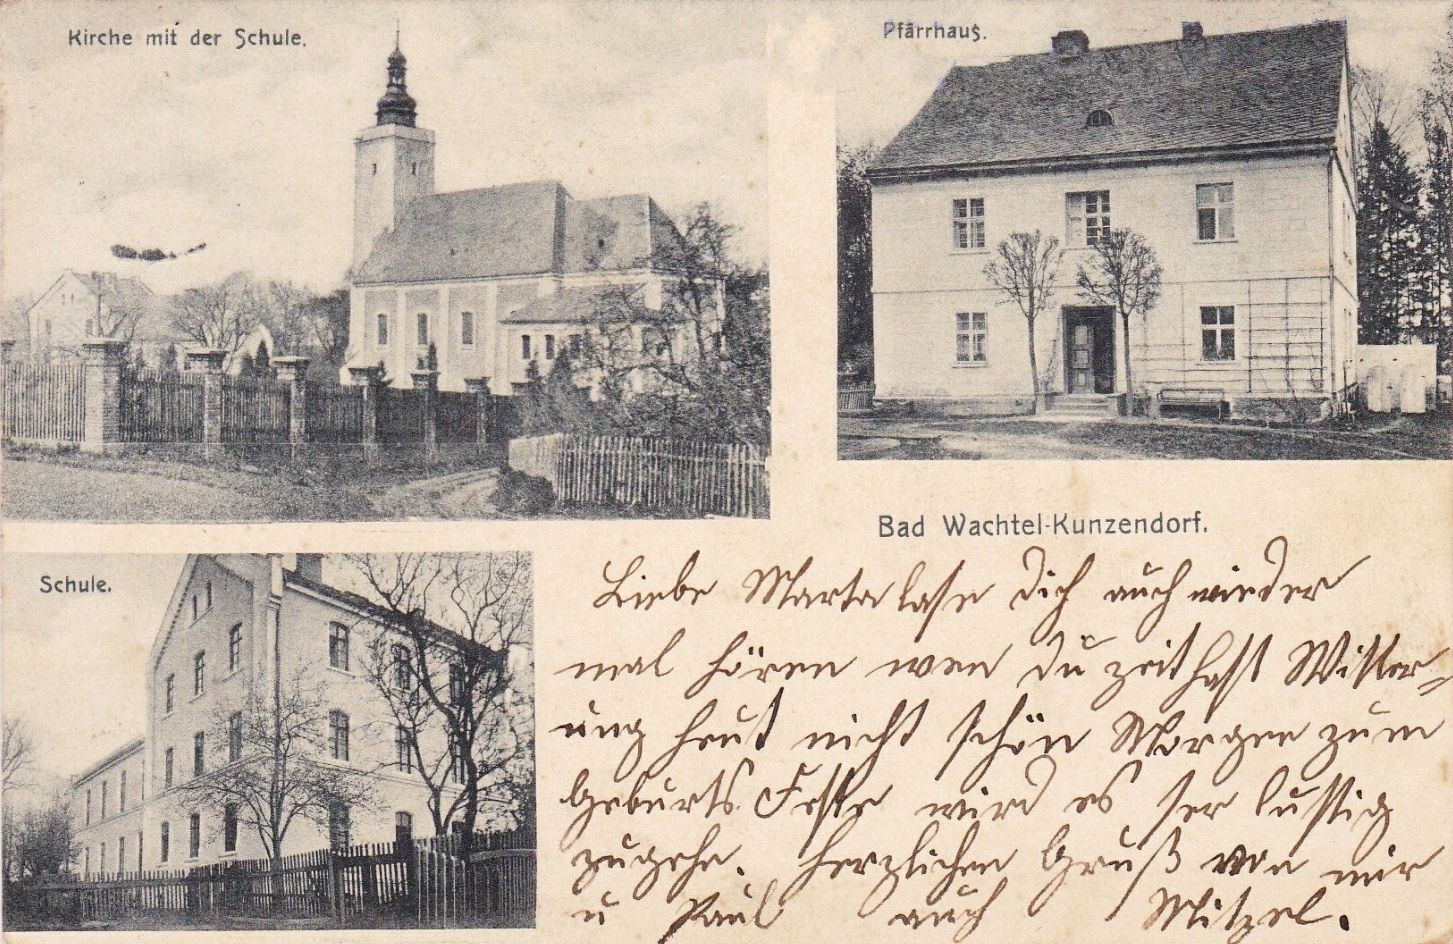 Kirche mit der Schule.
Pfärrhaus.
Schule.
Bad Wachtel-Kunzendorf.
Liebe Marta lase Dich auch wieder
mal hören wen du zeit hast Witter-
ung heut nicht schön Morgen zum
Geburts Feste wird es ser lustig
zugehe. Herzlichen Gruß von mir
u Paul auch Mitzel.